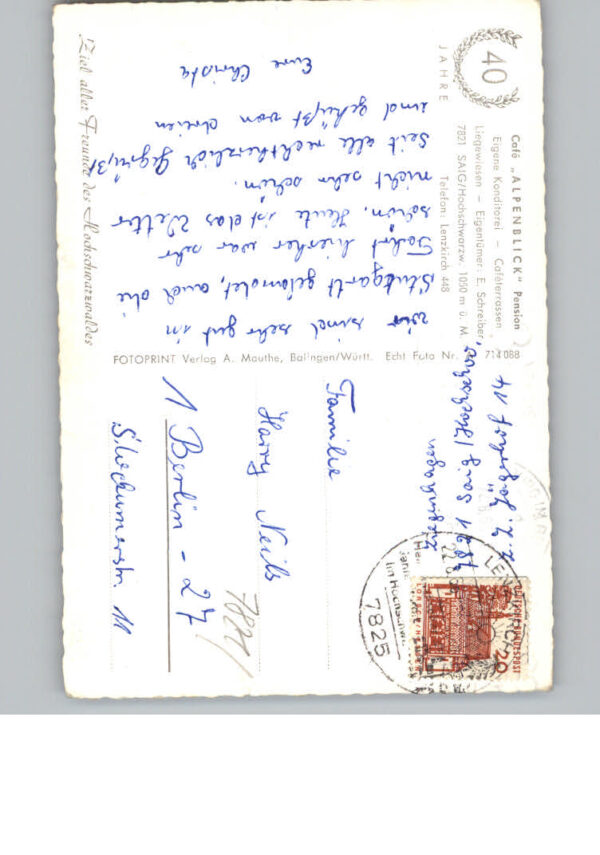 Café „ALPENBLICK" Pension
Eigene Konditorei – Caféterrassen
Liegewiesen – Eigentümer: E. Schreiber
7821 SAIG/Hochschwarzw. 1050 m ü. M.
Telefon: Lenzkirch 448
40
JAHRE
Ziel aller Freunde des Hochschwarzwaldes
wir sind sehr gut in
Stuttgart gelandet, auch die
Fahrt hierher war sehr
schön. Heute ist das Wetter
nicht sehr schön.
Seit alle recht herzlich gegrüßt
und geküßt von
Eure Christa
FOTOPRINT Verlag A. Mauthe, Balingen/Württ. Echt Foto Nr. 714 088
z. Z. Jägerhof 14
7821 Saig/Hochschw.
DEUTSCHE BUNDESPOST
20
7825
LENZKIRCH
Im Hochschwarz
Familie
Harry Neils
1 Berlin - 27
Stockumerstr. 11
7821/